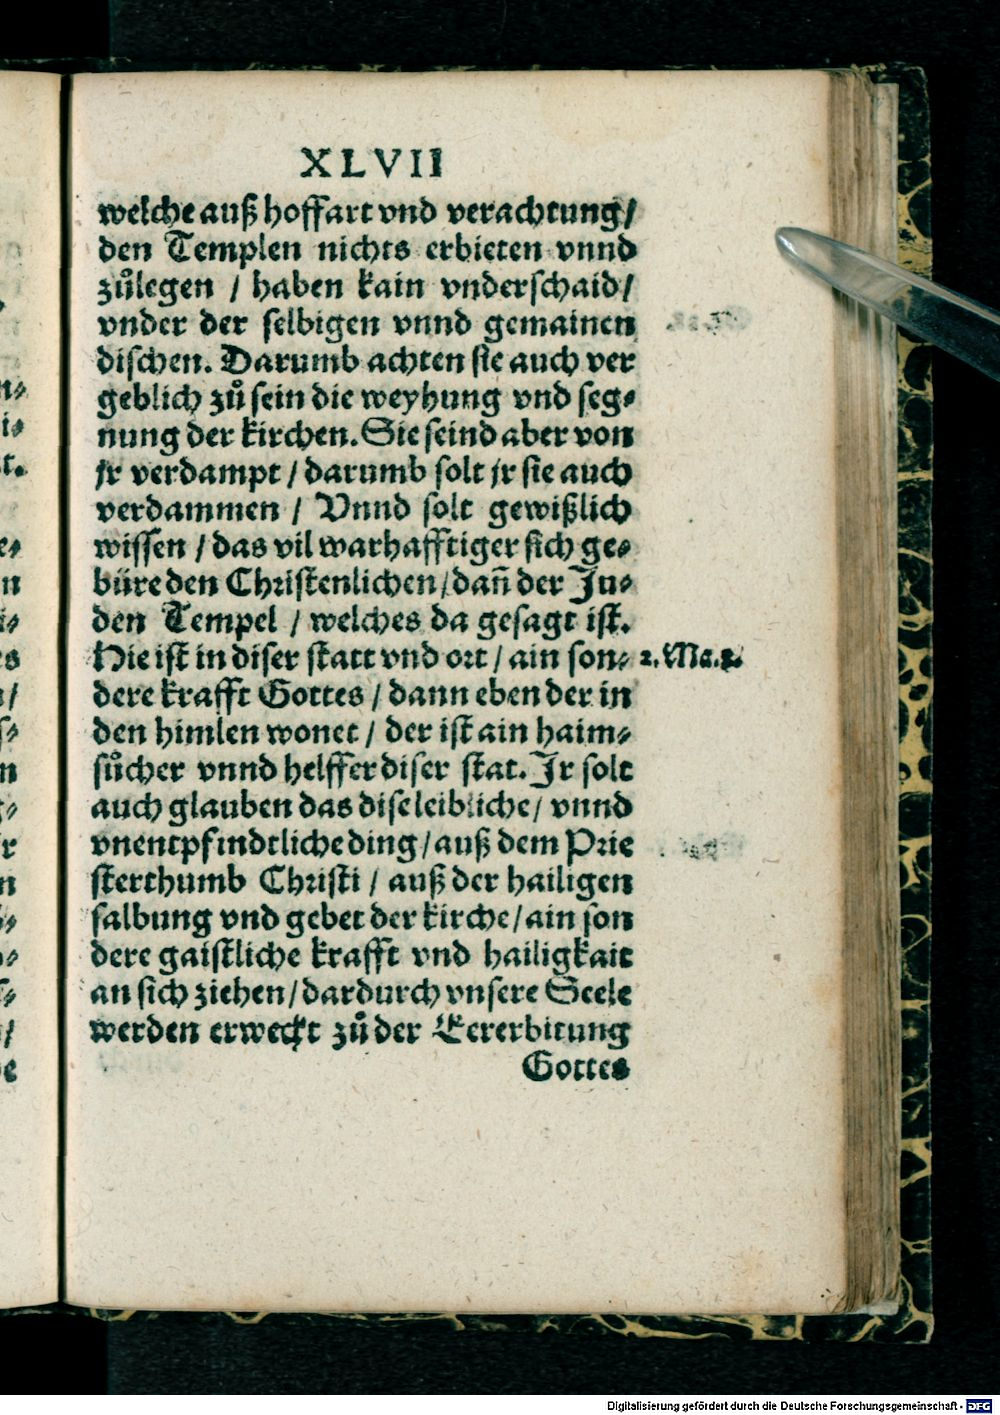 XLVII
welche auß hoffart vnd verachtung/
den Templen nichts erbieten vnnd
zůlegen / haben kain vnderschaid/
vnder der selbigen vnnd gemainen
dischen. Darumb achten sie auch ver
geblich zů sein die weyhung vnd seg⸗
nung der kirchen. Sie seind aber von
jr verdampt / darumb solt jr sie auch
verdammen / Vnnd solt gewißlich
wissen / das vil warhafftiger sich ge⸗
büre den Christenlichen / dañ der Ju⸗
den Tempel / welches da gesagt ist.
Hie ist in diser statt vnd ort / ain son⸗ 2. Ma. 3.
dere krafft Gottes / dann eben der in
den himlen wonet / der ist ain haim⸗
sůcher vnnd helffer diser stat. Jr solt
auch glauben das dise leibliche / vnnd
vnentpfindtliche ding / auß dem Prie
sterthumb Christi / auß der hailigen
salbung vnd gebet der kirche / ain son
dere gaistliche krafft vnd hailigkait
an sich ziehen / dardurch vnsere Seele
werden erweckt zů der Eererbitung
Gottes
Digitalisierung gefördert durch die Deutsche Forschungsgemeinschaft - DFG